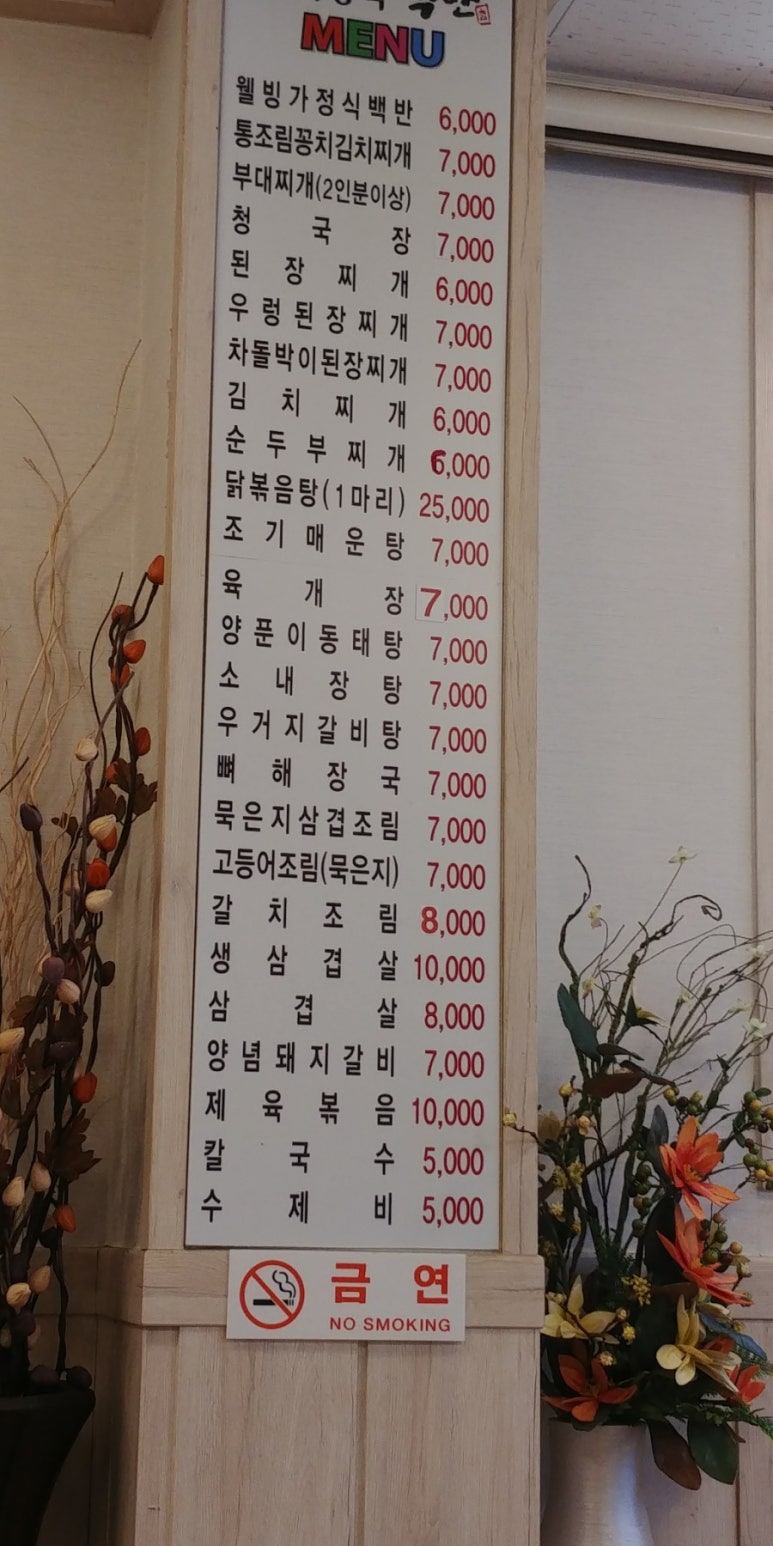 MENU
웰빙가정식백반 6,000
통조림꽁치김치찌개 7,000
부대찌개(2인분이상) 7,000
청국장 7,000
된장찌개 6,000
우렁된장찌개 7,000
차돌박이된장찌개 7,000
김치찌개 6,000
순두부찌개 6,000
닭볶음탕(1마리) 25,000
조기매운탕 7,000
육개장 7,000
양푼이동태탕 7,000
소내장탕 7,000
우거지갈비탕 7,000
뼈해장국 7,000
묵은지삼겹조림 7,000
고등어조림(묵은지) 7,000
갈치조림 8,000
생삼겹살 10,000
삼겹살 8,000
양념돼지갈비 7,000
제육볶음 10,000
칼국수 5,000
수제비 5,000
금연
NO SMOKING